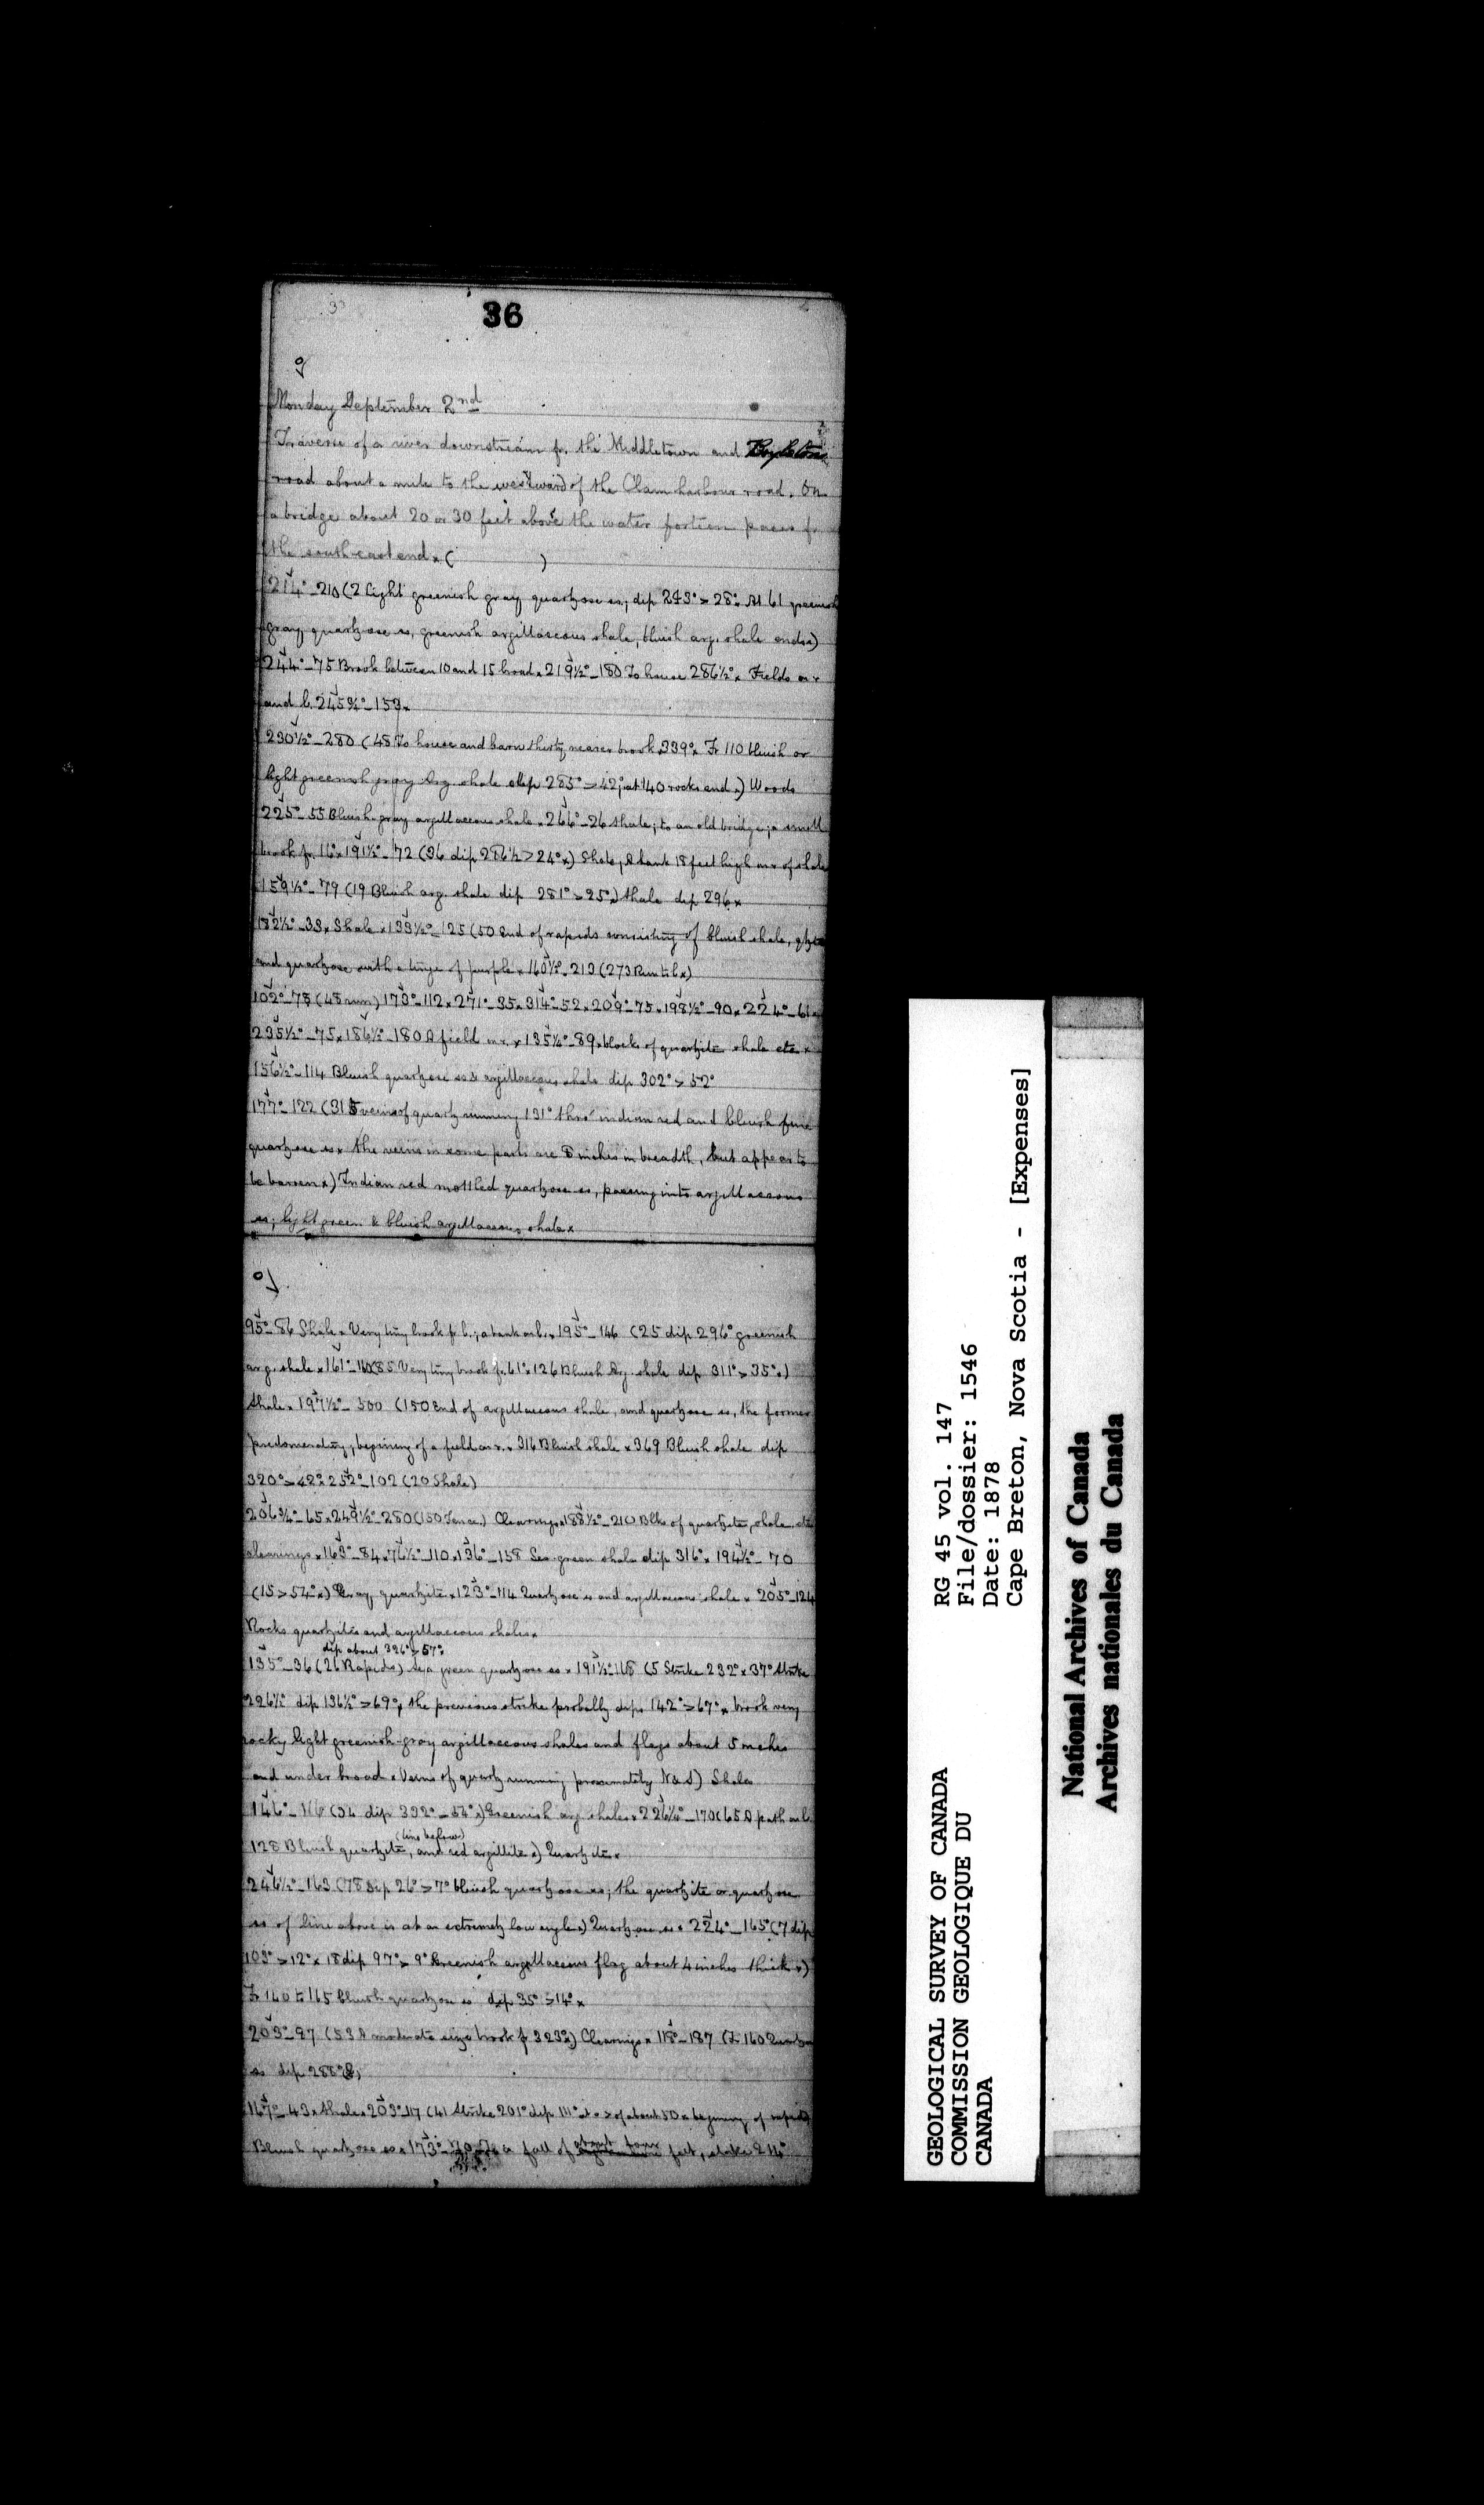 36
Monday September 2nd
Traverse of a river downstream fr. the Middletown and Boylston
road about a mile to the westward of the Clam harbour road. On
a bridge about 20 or 30 feet above the water forteen paces fr
the south-east end x ( )
214°_210 (2 light greenish gray quartzose ss, dip 243° > 28° x At 61 greenish
gray quartzose ss, greenish argillaceous shale, bluish arg. shale ends x)
244°_75 Brook between 10 and 15 broad x 219½°_180 To house 286½° x Fields on r
and l. 245¾°_153 x
230½°_280 (48 To house and barn thirty nearer brook 339° x Fr 110 bluish or
light greenish gray Arg. shale dip 285° > 42°; at 140 rocks end x) Woods
225°_55 Bluish-gray argillaceous shale x 266°_26 Shale; to an old bridge; a small
brook fr. 16° x 191½°_72 (36 dip 286½ > 24° x) Shale, A bank 18 feet high on r of shale
159½°_79 (19 Bluish arg. shale dip 281° > 25° x) Shale dip 296 x
182½°_38 x Shale x 133½°_125 (50 End of rapids consisting of bluish shale,
and quartzose with a tinge of purple x 160½°_213 (273 Run to l x)
102°_78 (48 run) 173°_112 x 271°_35 x 314°_52 x 209°_75 x 198½°_90 x 224°_61 x
235½°_75 x 186½°_180 A field on r. x 135¼°_89 x blocks of quartzite shale etc x
156½°_114 Bluish quartzose ss & argillaceous shale dip 302° > 52°
177°_122 (31 5 veins of quartz running 131° thro' indian red and bluish fine
quartzose ss x the veins in some parts are 8 inches in breadth, but appear to
be barren x) Indian red mottled quartzose ss, passing into argillaceous
ss; light green & bluish argillaceous shale x
95°_86 Shale x Very tiny brook fr l.; a bank on l. x 195°_146 (25 dip 296° greenish
arg. shale x 161° (85 Very tiny brook fr. 61° x 126 Bluish Arg. shale dip 311° > 35° x)
Shale x 197½°_300 (150 End of argillaceous shale, and quartzose ss, the former
predominating, begining of a field on r. x 316 Bluish shale x 369 Bluish shale dip
320° > 42° x 252°_102 (20 Shale)
206¾°_65 x 249½°_280 (150 Fence.) Clearings x 188½°_210 Blks of quartzite, shale etc
clearings x 163°_84 x 76½°_110 x 136°_158 Sea-green shale dip 316° x 194½°_70
(15 > 54° x) Gray quartzite x 123°_114 Quartzose ss and argillaceous shale x 205°_124
Rocks quartzites and argillaceous shales x
dip about 326° > 57° x
135°_36 (26 Rapids) Sea green quartzose ss x 191½°_118 (5 Strike 232° x 37° Strike
226½° dip 136½° > 69°, the previous strike probably dips 142° > 67° x brook very
rocky light greenish-gray argillaceous shales and flags about 5 inches
and under broad x Veins of quartz running proximately N & S) Shales
146°_116 (34 dip 332° _ 54° x) Greenish arg. shales x 226¼°_170 (65 A path on l.
(line below)
128 Bluish quartzite, and red argillite x) Quartzites x
246½°_163 (78 Dip 26° > 7° bluish quartzose ss; the quartzite or quartzose
ss of line above is at an extremely low angle x) Quartzose ss x 224°_165 (7 dip
103° > 12° x 18 dip 97° > 9° Greenish argillaceous flag about 4 inches thick x)
Fr 140 to 165 bluish quartzose ss dip 35° > 14° x
203°_97 (53 A moderate size brook fr 323° x) Clearings x 118°_187 (Fr 160
ss dip 288°
167°_43 x Shales x 203°_17 (41 Strike 201° dip 111° at a > of about 50 x begining of rapids
Bluish quartzose ss x 173° To a fall of about four feet, strike 214°
GEOLOGICAL SURVEY OF CANADA
COMMISSION GEOLOGIQUE DU
CANADA
RG 45 vol. 147
File/dossier: 1546
Date: 1878
Cape Breton, Nova Scotia - [Expenses]
National Archives of Canada
Archives nationales du Canada